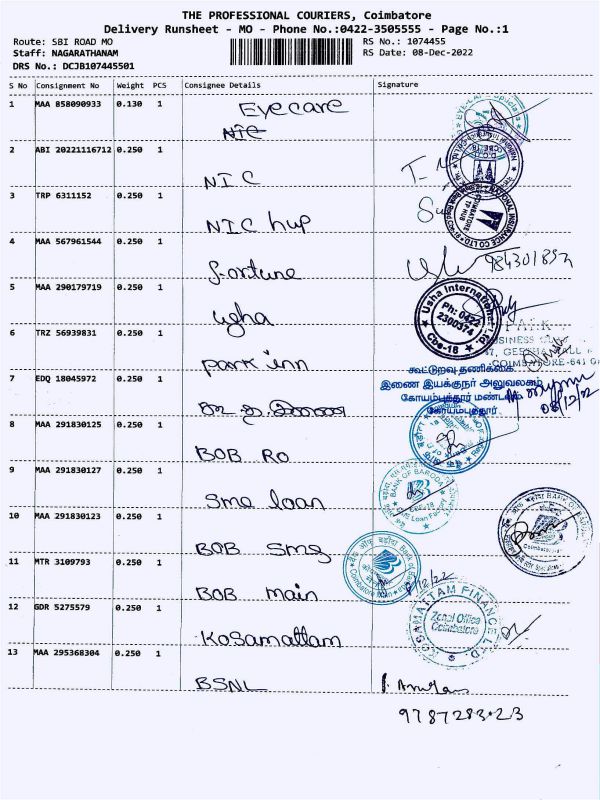 THE PROFESSIONAL COURIERS, Coimbatore
Delivery Runsheet - MO - Phone No.:0422-3505555 - Page No.:1
Route: SBI ROAD MO
RS No.: 1074455
Staff: NAGARATHANAM
RS Date: 08-Dec-2022
DRS No.: DCJB107445501
S No Consignment No Weight PCS Consignee Details Signature
1 MAA 858090933 0.130 1 Eyecare
NIC
2 ABI 20221116712 0.250 1 NIC
3 TRP 6311152 0.250 1 NIC hup
NATIONAL INSURANCE CO LTD
COIMBATORE
TP HUB
4 MAA 567961544 0.250 1 fortune
5 MAA 290179719 0.250 1 Usha
Usha International Ltd
Ph: 0422
2300374
Cbe-18
6 TRZ 56939831 0.250 1 Park inn
PARK
BUSINESS
COIMBATORE-641
7 EDQ 18045972 0.250 1
கூட்டுறவு தணிக்கை
இணை இயக்குநர் அலுவலகம்
கோயம்புத்தூர் மண்டலம்
கோயம்புத்தூர்
08/12/22
8 MAA 291830125 0.250 1 BOB RO
9 MAA 291830127 0.250 1 Sme loan
BANK OF BARODA
CBE-18
10 MAA 291830123 0.250 1 BOB Smg
11 MTR 3109793 0.250 1 BOB main
बैंक ऑफ़ बड़ौदा Bank of Baroda
Coimbatore Main
8/12/22
12 GDR 5275579 0.250 1 Kosamattam
KOSAMATTAM FINANCE LTD.
Zonal Office
Coimbatore
13 MAA 295368304 0.250 1 BSNL